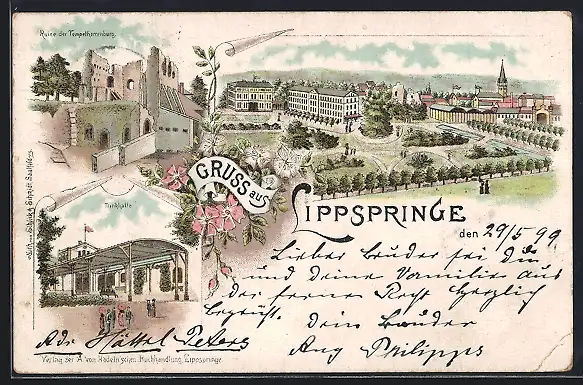 Ruine der Tempelherrenburg.
GRUSS aus
LIPPSPRINGE
den 29/5 99
Trinkhalle
Lieber Bruder sei Du
und deine Vamilie aus
der ferne Recht Herzlich
begrüßt. Dein Bruder
Aug Philipps
Adr Hôttel Peters
Verlag der A. von Nadeln'schen Buchhandlung, Lippspringe.